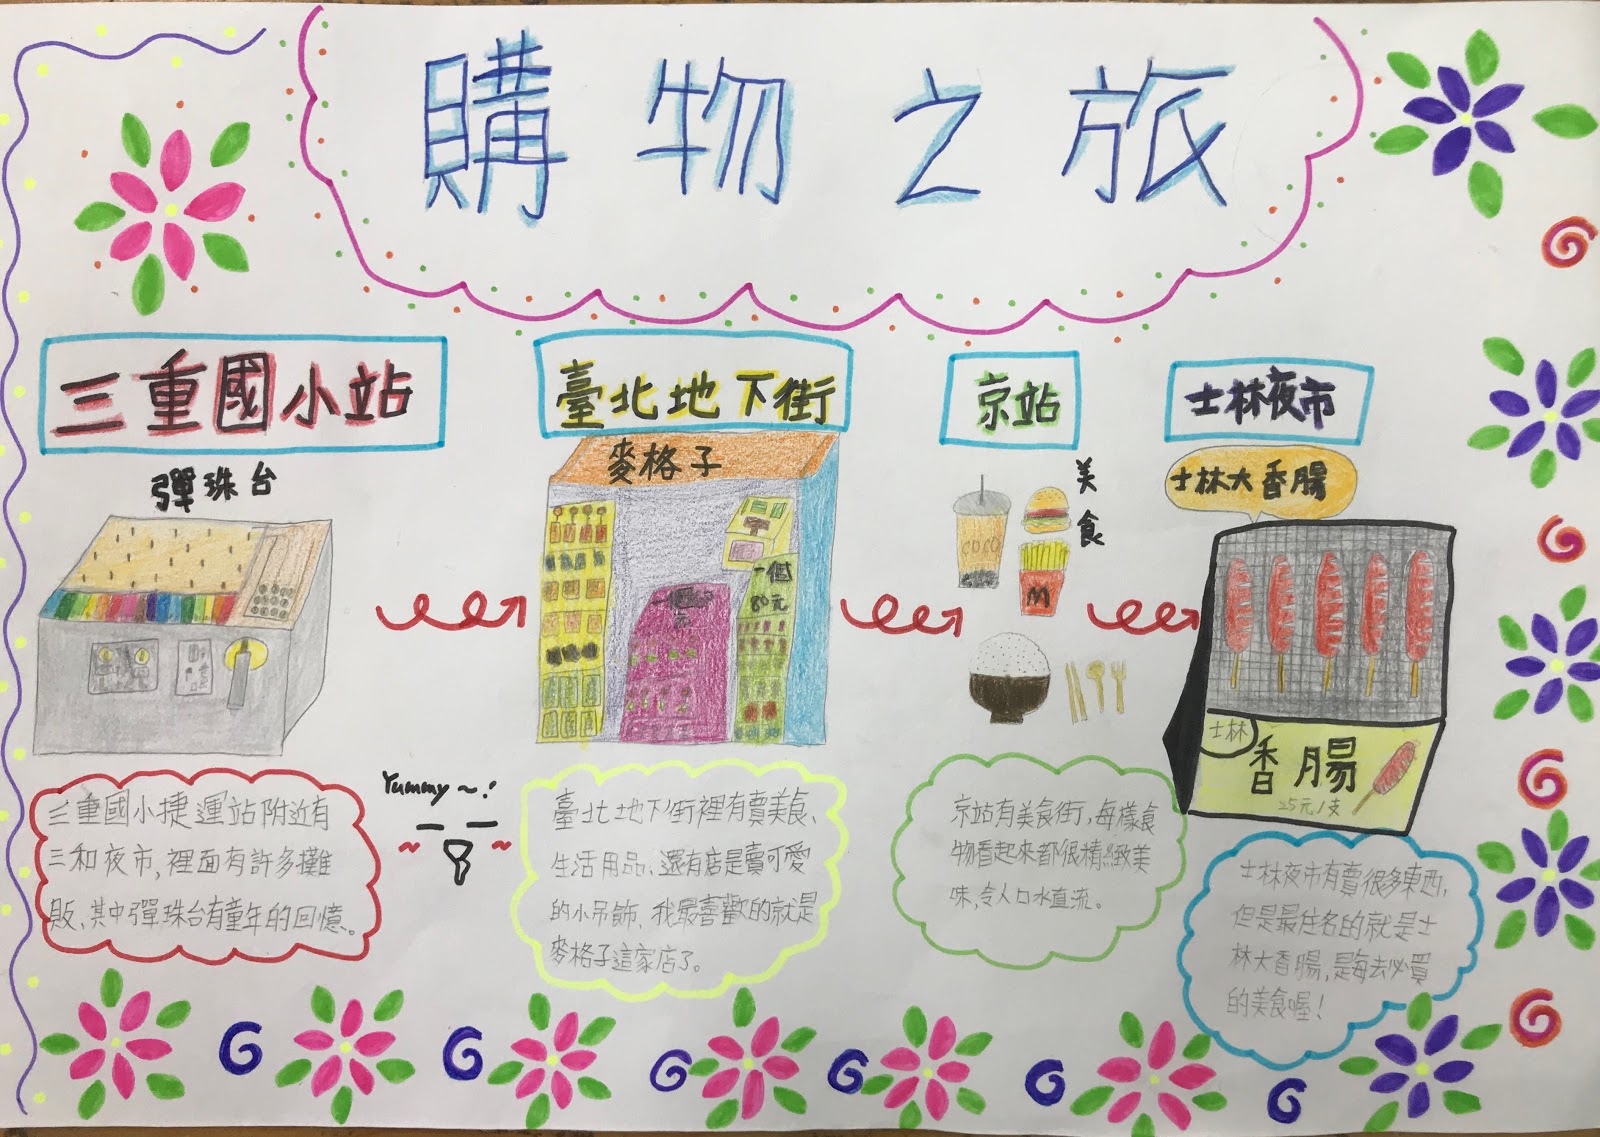 購物之旅
三重國小站
彈珠台
三重國小捷運站附近有
三和夜市,裡面有許多攤
販、其中彈珠台有童年的回憶。
Yummy~!
臺北地下街
麥格子
一個
80元
臺北地下街裡有賣美食、
生活用品、還有店是賣可愛
的小吊飾,我最喜歡的就是
麥格子這家店了。
京站
美食
COCO
M
京站有美食街,每樣食
物看起來都很精緻美
味,令人口水直流。
士林夜市
士林大香腸
士林
香腸
25元/支
士林夜市有賣很多東西,
但是最佳名的就是士
林大香腸,是每去必買
的美食喔!